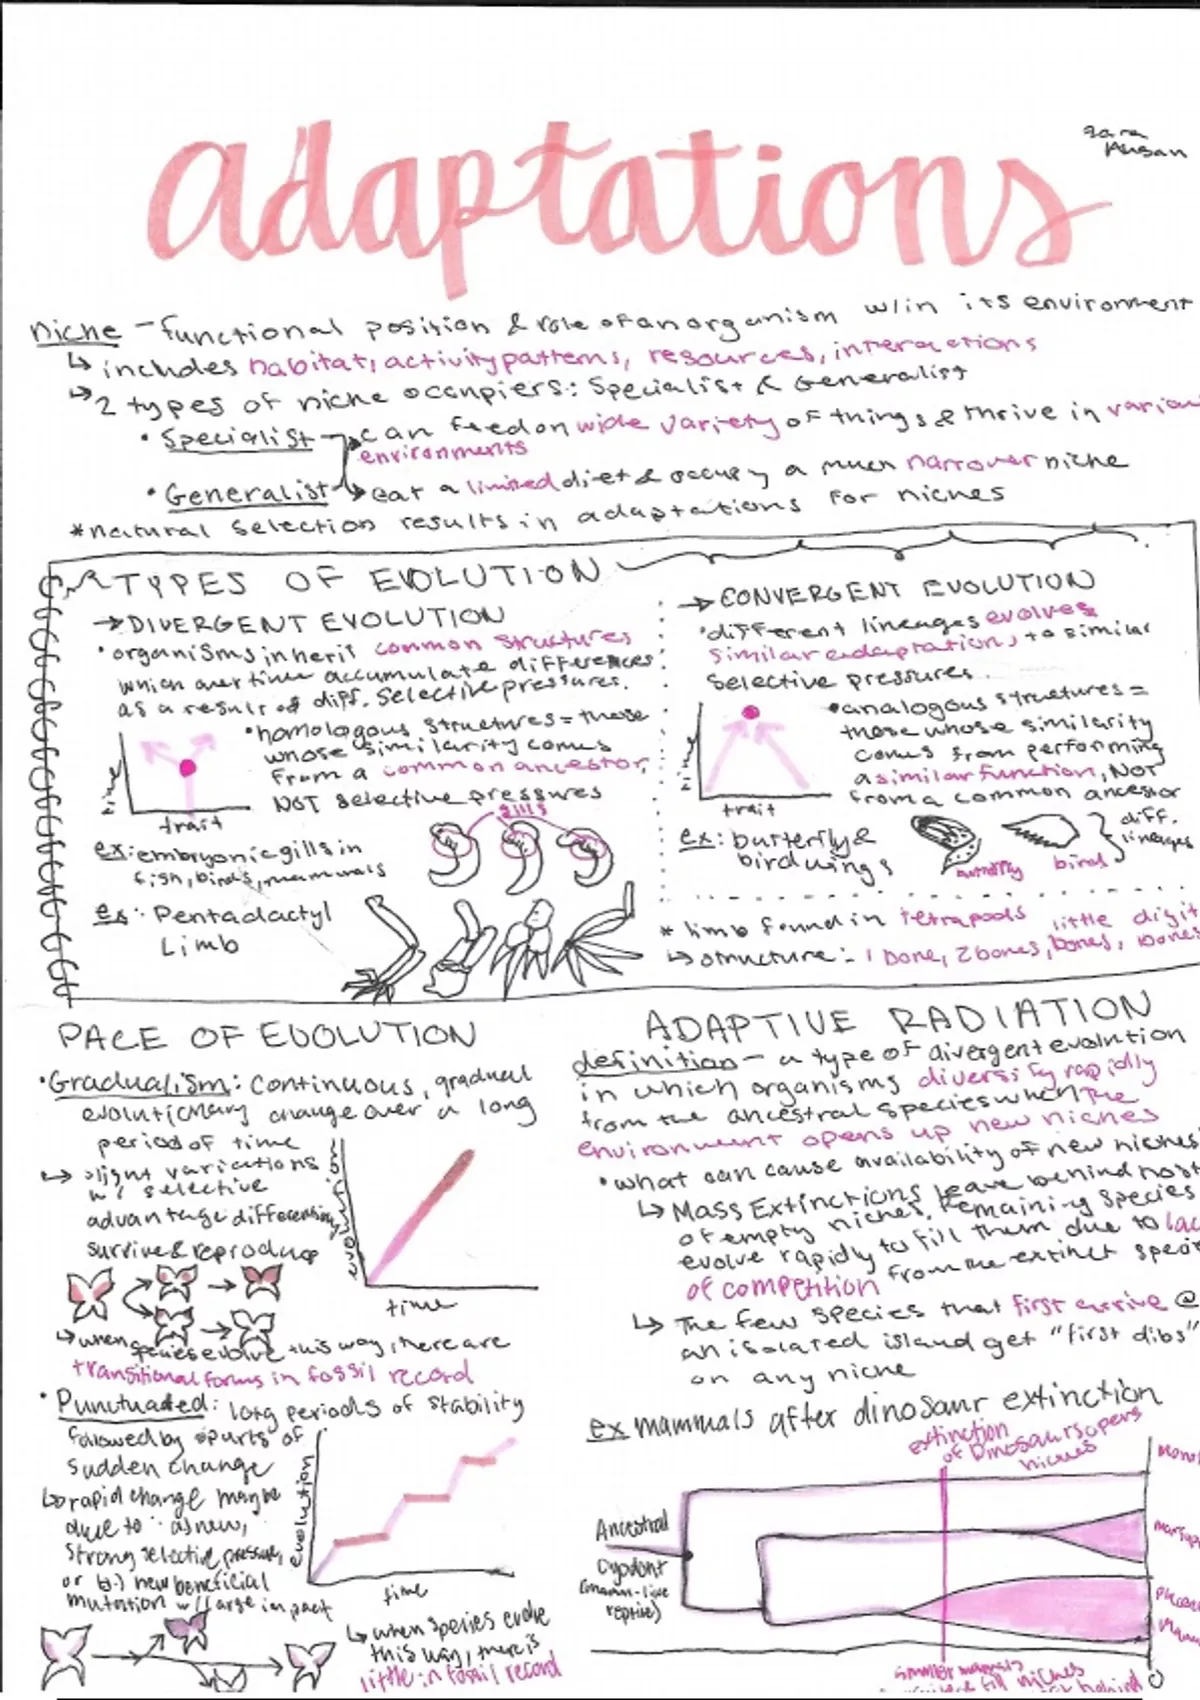 adaptations
Sara
Ahsan
niche - functional position & role of an organism w/in its environment
↳ includes habitat, activity patterns, resources, interactions
↳ 2 types of niche occupiers: Specialist & Generalist
• Specialist → can feed on wide variety of things & thrive in
environments
• Generalist → eat a limited diet & occupy a much narrower niche
*natural selection results in adaptations for niches
TYPES OF EVOLUTION
→ DIVERGENT EVOLUTION
• organisms inherit common structures
which over time accumulate differences
as a result of diff. selective pressures.
• homologous structures = those
whose similarity comes
from a common ancestor,
NOT selective pressures
time
trait
ex: embryonic gills in
fish, birds, mammals
gills
ex: Pentadactyl
Limb
→ CONVERGENT EVOLUTION
• different lineages evolves
similar adaptations, to similar
selective pressures.
• analogous structures =
those whose similarity
comes from performing
a similar function, NOT
from a common ancestor
time
trait
ex: butterfly &
bird wings
butterfly
bird
diff.
lineages
* limb found in tetrapods
↳ structure: 1 bone, 2 bones, little bones, digit bones
PACE OF EVOLUTION
• Gradualism: continuous, gradual
evolutionary change over a long
period of time
↳ slight variations
w/ selective
advantage differentially
survive & reproduce
evolution
time
↳ when species evolve this way, there are
transitional forms in fossil record
• Punctuated: long periods of stability
followed by spurts of
sudden change
↳ rapid change maybe
due to a) new,
strong selective pressures
or b) new beneficial
mutation w/ large impact
evolution
time
↳ when species evolve
this way, there is
little in fossil record
ADAPTIVE RADIATION
definition - a type of divergent evolution
in which organisms diversify rapidly
from the ancestral species when the
environment opens up new niches
• what can cause availability of new niches
↳ Mass Extinctions leave behind
of empty niches. Remaining species
evolve rapidly to fill them due to
of competition from the extinct
↳ The few species that first arrive @
an isolated island get "first dibs"
on any niche
ex mammals after dinosaur extinction
extinction
of Dinosaurs opens
niches
Ancestral
Cynodont
(mamm-like
reptile)
smaller mammals
fill niches
behind
0